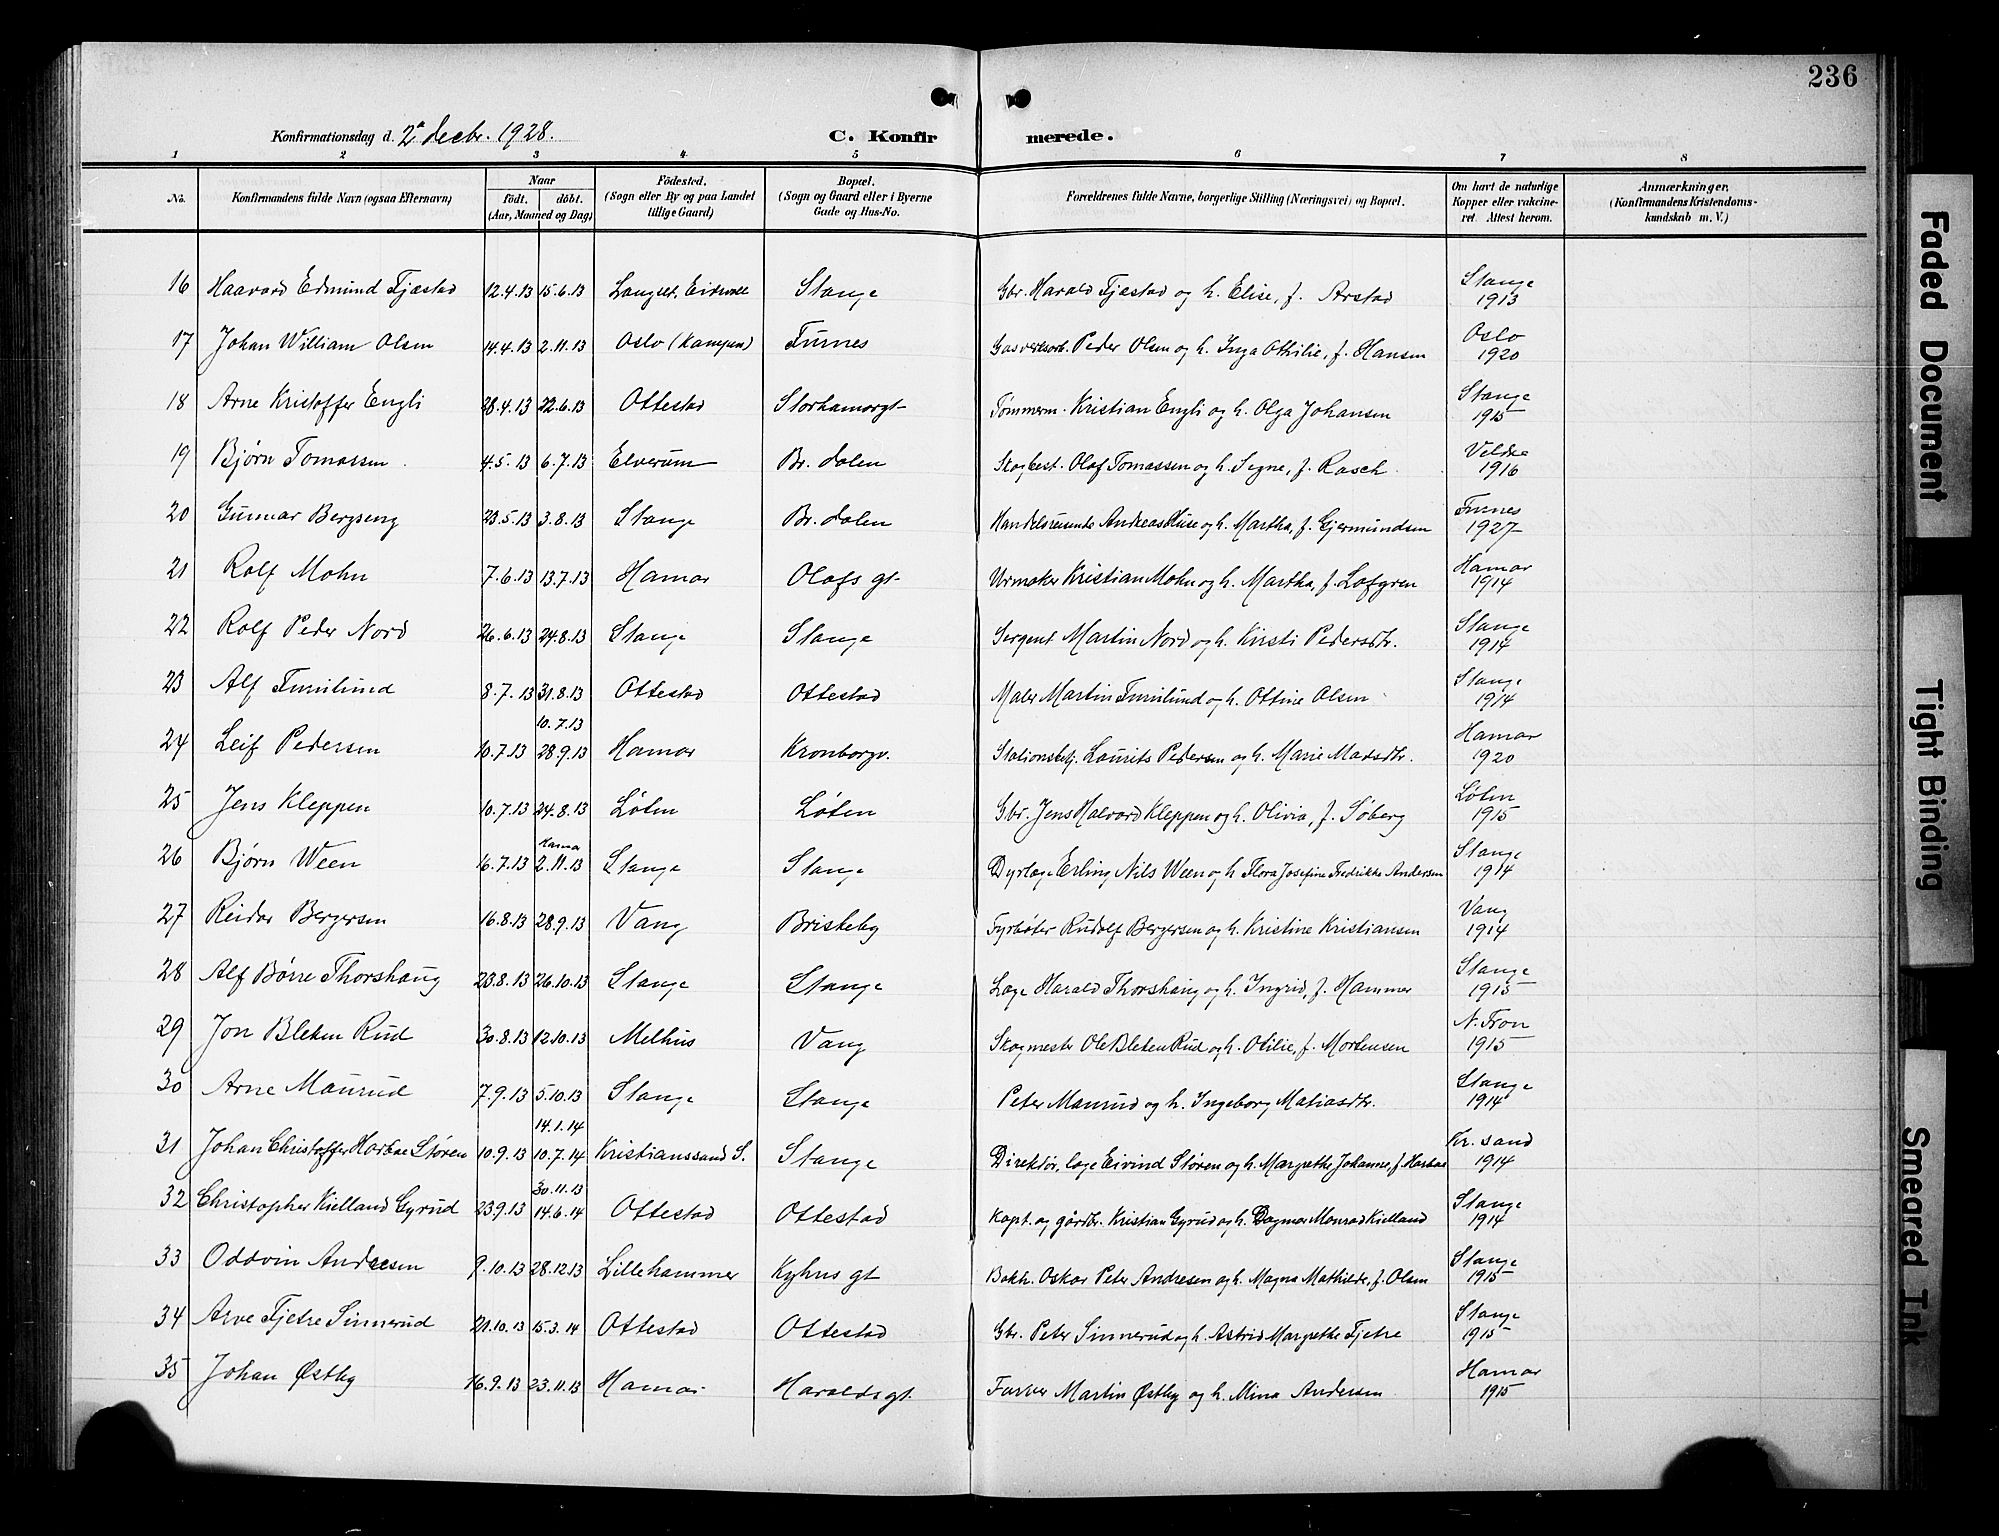 236
Konfirmationsdag d. 2' decbr. 1928.
C. Konfirmerede.
1 2 3 4 5 6 7 8
No. | Konfirmandens fulde Navn (ogsaa Efternavn) | Naar födt. döbt. (Aar, Maaned og Dag) | Födested. (Sogn eller By og paa Landet tillige Gaard) | Bopæl. (Sogn og Gaard eller i Byerne Gade og Hus-No. | Forældrenes fulde Navne, borgerlige Stilling (Næringsvei) og Bopæl. | Om havt de naturlige Kopper eller vakcineret. Attest herom. | Anmærkninger. (Konfirmandens Kristendomskundskab m. V.)
16 Haavard Edmund Fjæstad 12.4.13 15.6.13 Langset, Eidsvoll Stange Gbr. Harald Fjæstad og h. Elise, f. Arstad Stange 1913
17 Johan William Olsen 14.4.13 2.11.13 Oslo (Kampen) Furnes Gasverksarb. Peder Olsen og h. Inga Othilie, f. Hansen Oslo 1920
18 Arne Kristoffer Engli 28.4.13 22.6.13 Ottestad Storhamargt. Tømmerm. Kristian Engli og h. Olga Johansen Stange 1915
19 Bjørn Tomassen 4.5.13 6.7.13 Elverum Br. dalen Skogbest. Olaf Tomassen og h. Signe, f. Rasch Veldre 1916
20 Gunnar Bergseng 23.5.13 3.8.13 Stange Br. dalen Handelsreisende Andreas Huse og h. Martha, f. Gjermundsen Furnes 1927
21 Rolf Mohn 7.6.13 13.7.13 Hamar Olafs gt. Urmaker Kristian Mohn og h. Martha, f. Lofgren Hamar 1914
22 Rolf Peder Nord 26.6.13 24.8.13 Stange Stange Sergent Martin Nord og h. Kirsti Pedersdtr. Stange 1914
23 Alf Furulund 8.7.13 31.8.13 Ottestad Ottestad Maler Martin Furulund og h. Ottine Olsen Stange 1914
10.7.13
24 Leif Pedersen 10.7.13 28.9.13 Hamar Kronborgv. Stationsbetj. Laurits Pedersen og h. Marie Madsdtr. Hamar 1920
25 Jens Kleppen 10.7.13 24.8.13 Løten Løten Gbr. Jens Halvard Kleppen og h. Olivia, f. Søberg Løten 1915
Hamar
26 Bjørn Ween 16.7.13 2.11.13 Stange Stange Dyrlæge Erling Nils Ween og h. Flora Josefine Fredrikke Andersen Stange 1914
27 Reidar Bergersen 16.8.13 28.9.13 Vang Briskeby Fyrbøter Rudolf Bergersen og h. Kristine Kristiansen Vang 1914
28 Alf Børre Thorshaug 23.8.13 26.10.13 Stange Stange Læge Harald Thorshaug og h. Ingrid, f. Hammer Stange 1915
29 Jon Bleken Rud 30.8.13 12.10.13 Melhus Vang Skogmester Ole Bleken Rud og h. Otilie, f. Mortensen N. Fron 1915
30 Arne Maurud 7.9.13 5.10.13 Stange Stange Peter Maurud og h. Ingeborg Matiasdtr. Stange 1914
14.1.14
31 Johan Christoffer Harboe Støren 10.9.13 10.7.14 Kristianssand S. Stange Direktør, læge Eivind Støren og h. Margrethe Johanne, f. Harboe Kr. sand 1914
30.11.13
32 Christopher Kielland Gyrud 23.9.13 14.6.14 Ottestad Ottestad Kapt. og gårdbr. Kristian Gyrud og h. Dagmar Monrad Kielland Stange 1914
33 Oddvin Andresen 9.10.13 28.12.13 Lillehammer Kyhus gt Bokh. Oskar Peter Andresen og h. Magna Mathilde, f. Olsen Stange 1915
34 Arve Fjetre Sinnerud 21.10.13 15.3.14 Ottestad Ottestad Gbr. Peter Sinnerud og h. Astrid Margrethe Fjetre Stange 1915
35 Johan Østby 16.9.13 23.11.13 Hamar Haralds gt. Farver Martin Østby og h. Mina Andersen Hamar 1915
Faded Document
Tight Binding
Smeared Ink